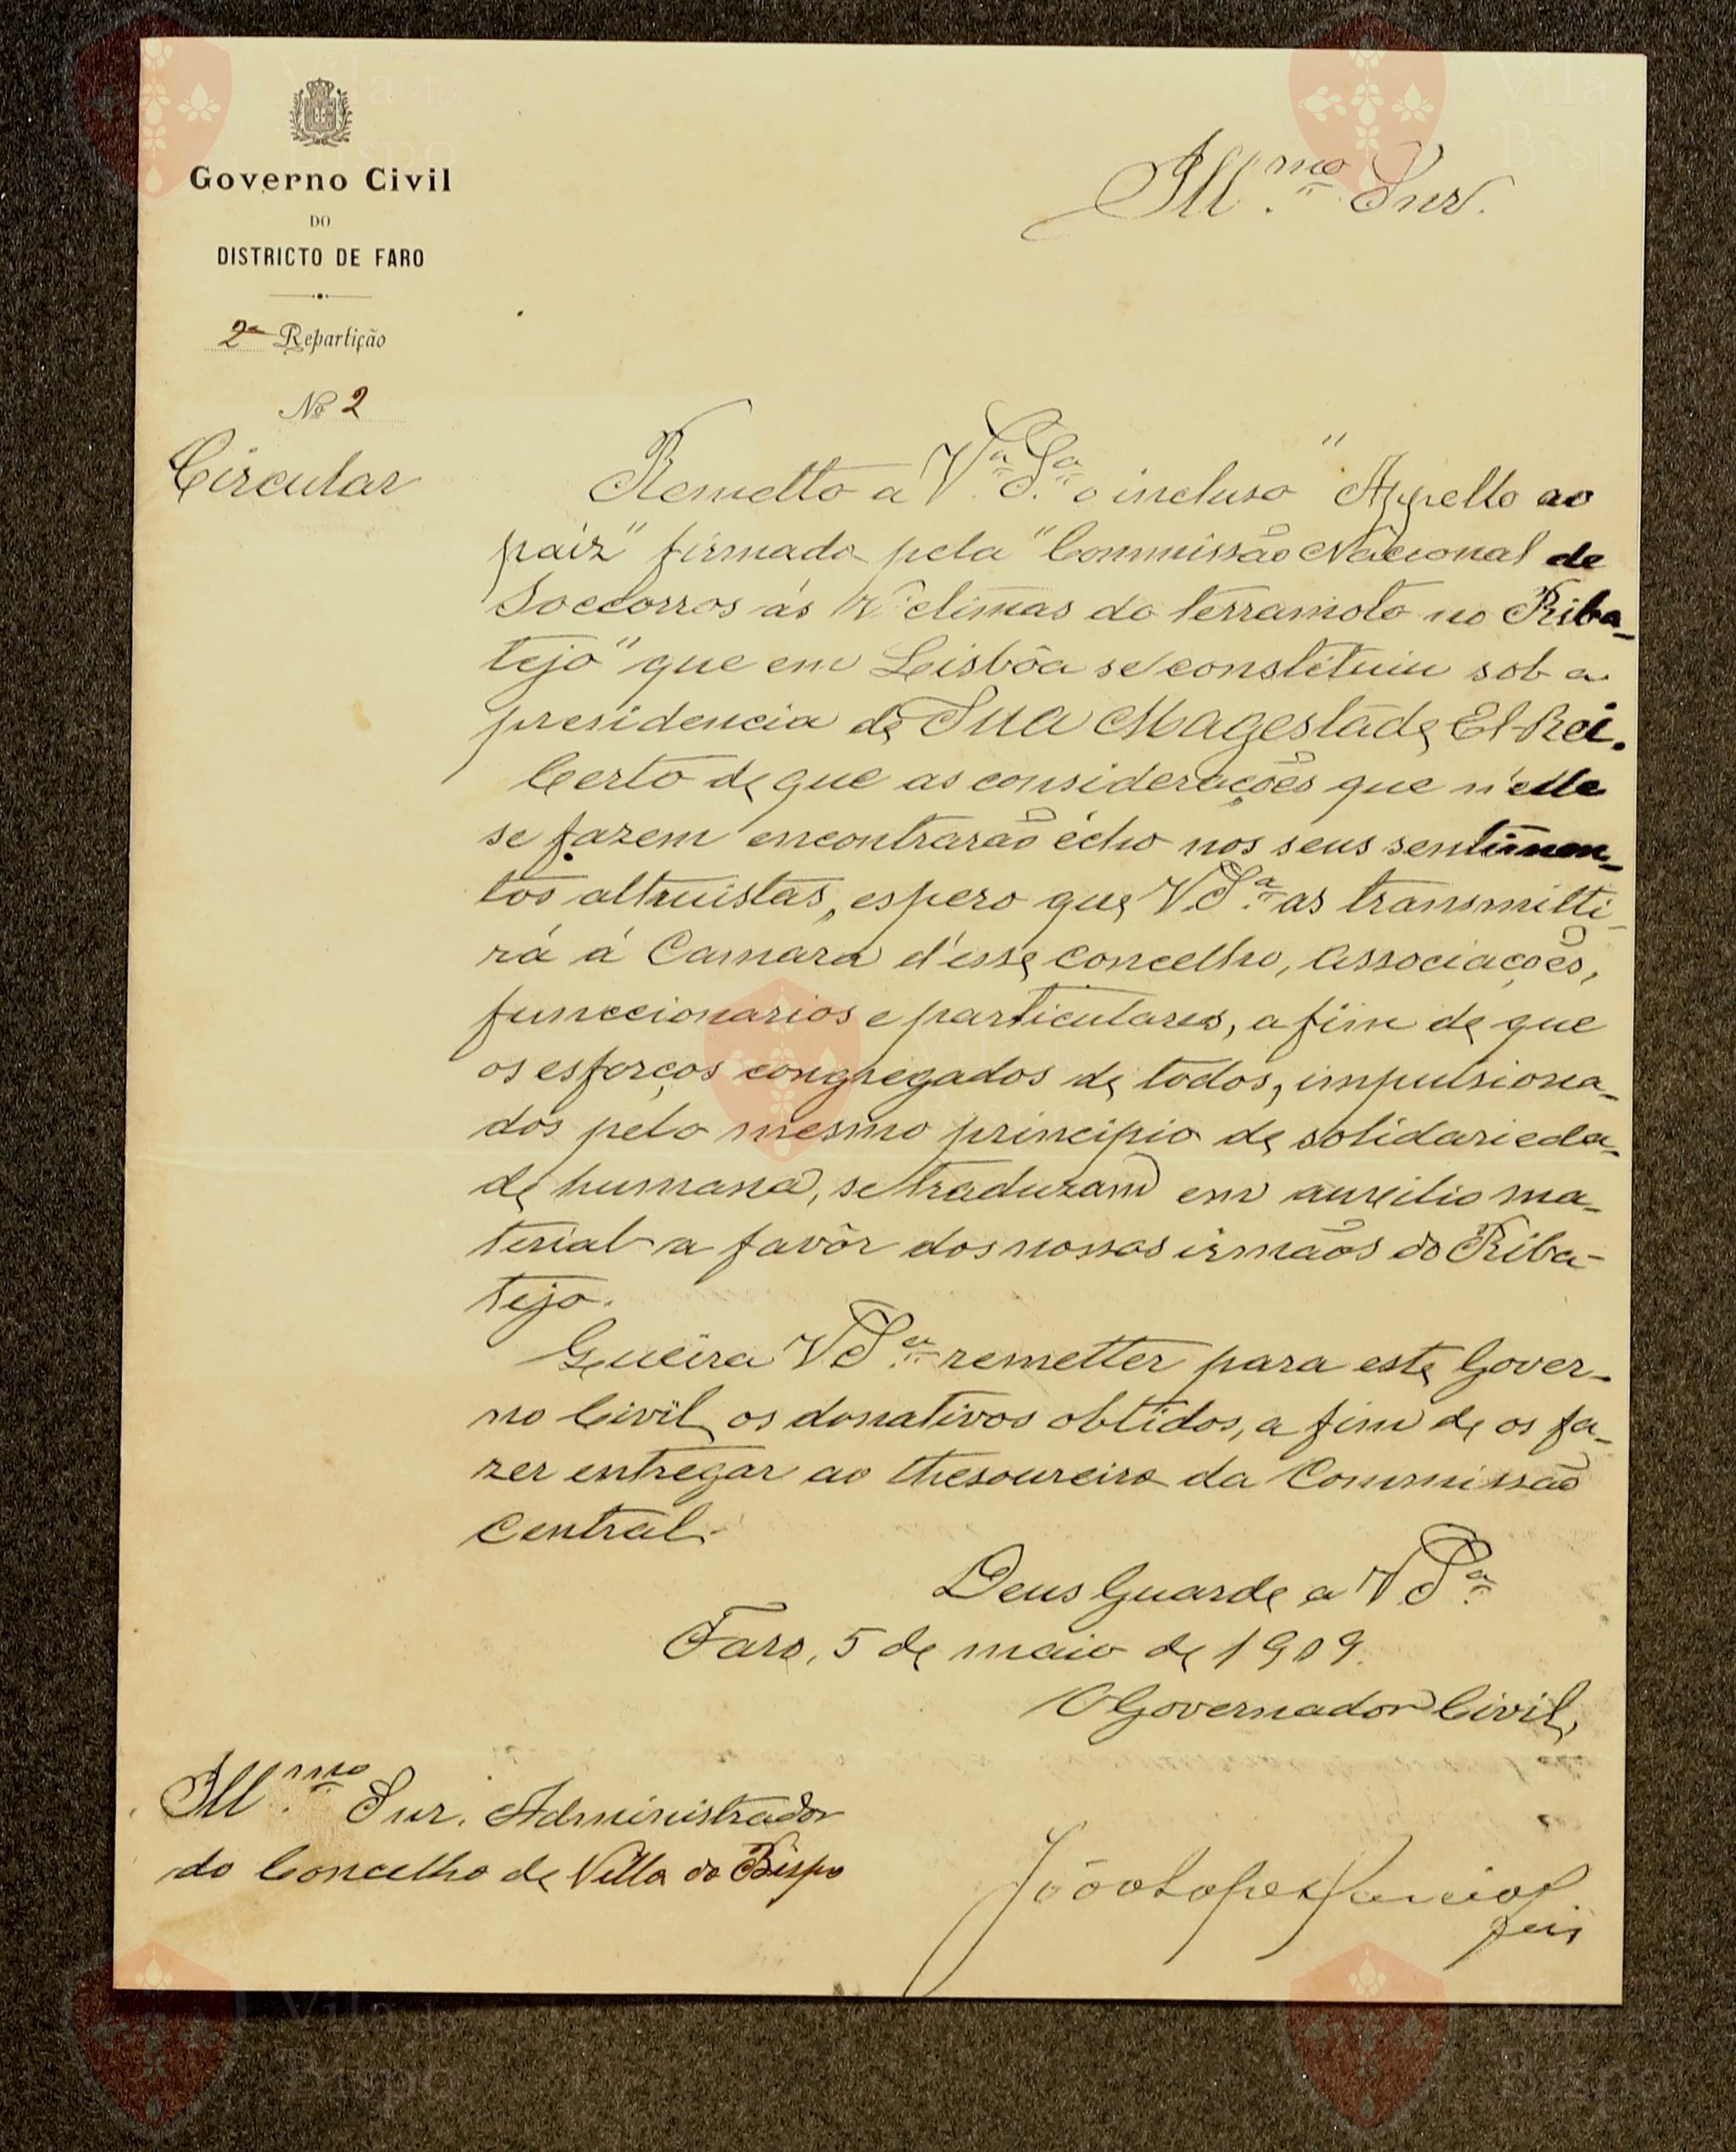 Governo Civil
DO
DISTRICTO DE FARO
2ª Repartição
Nº 2
Circular
Ill.mo Snr.
Remetto a V.ª S.ª o incluso "Appello ao
páiz" firmado pela "Commissão Nacional de
Soccorros ás Victimas do terramoto no Riba-
tejo" que em Lisbôa se constituiu sob a
presidencia de Sua Magestade El-Rei.
Certo de que as considerações que n'elle
se fazem encontrarão écho nos seus sentimen-
tos altruistas, espero que V. S.ª as transmitti-
rá á Camara d'esse concelho, associações,
funccionarios e particulares, a fim de que
os esforços congregados de todos, impulsiona-
dos pelo mesmo principio de solidarieda-
de humana, se traduzam em auxilio ma-
terial a favôr dos nossos irmãos do Riba-
tejo.
Queira V. S.ª remetter para este Gover-
no Civil os donativos obtidos, a fim de os fa-
zer entregar ao thesoureiro da Commissão
Central.
Deus Guarde a V. S.ª
Faro, 5 de maio de 1909.
O Governador Civil,
Ill.mo Snr. Administrador
do Concelho de Villa do Bispo
João Lopes
Reis
Vila do
Bispo
Vila
Bispo
Vila do
Bispo
Vila do
Bispo
Vila
Bispo